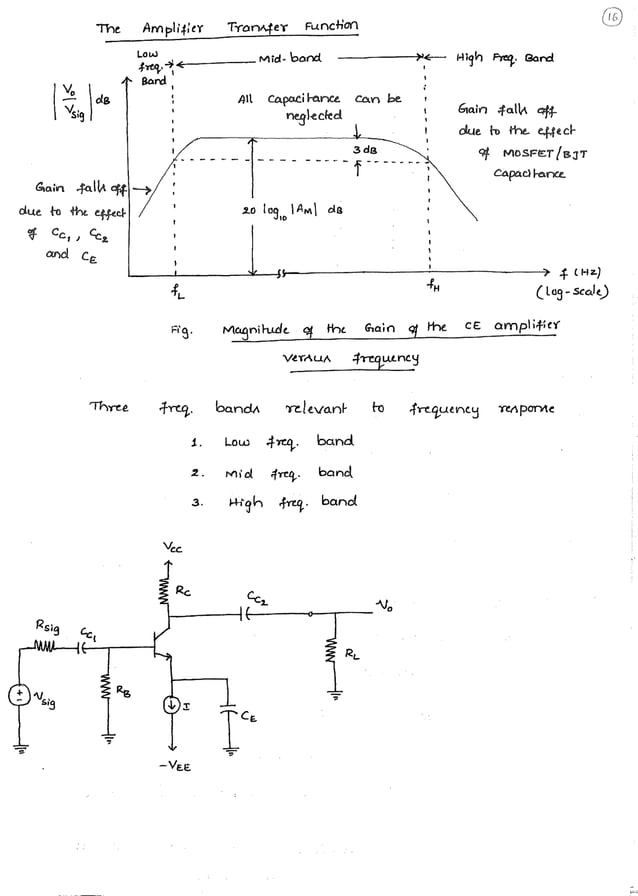 16
The Amplifier Transfer Function
Low
freq.
Band
Mid-band
High Freq. Band
|Vo/Vsig| dB
All Capacitance can be
neglected
3 dB
Gain falls off
due to the effect
of MOSFET/BJT
Capacitance
Gain falls off
due to the effect
of CC1, CC2
and CE
20 log10 |AM| dB
fL
fH
f (Hz)
(log-scale)
Fig. Magnitude of the Gain of the CE amplifier
versus frequency
Three freq. bands relevant to frequency response
1. Low freq. band
2. Mid freq. band
3. High freq. band
VCC
RC
CC2
Vo
Rsig
CC1
RL
RB
Vsig
I
CE
-VEE